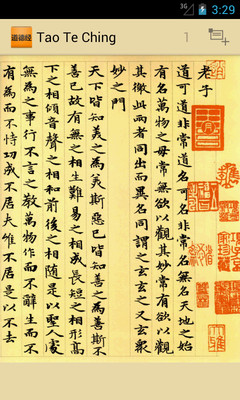 3:29
道德经
Tao Te Ching
1
老子
道可道非常道名可名非常名無名天地之始
有名萬物之母常無欲以觀其妙常有欲以觀
其徼此兩者同出而異名同謂之玄玄之又玄衆
妙之門
天下皆知美之為美斯惡已皆知善之為善斯不
善已故有無之相生難易之相成長短之相形高
下之相傾音聲之相和前後之相隨是以聖人處
無為之事行不言之教萬物作而不辭生而不
有為而不恃功成不居夫唯不居是以不去